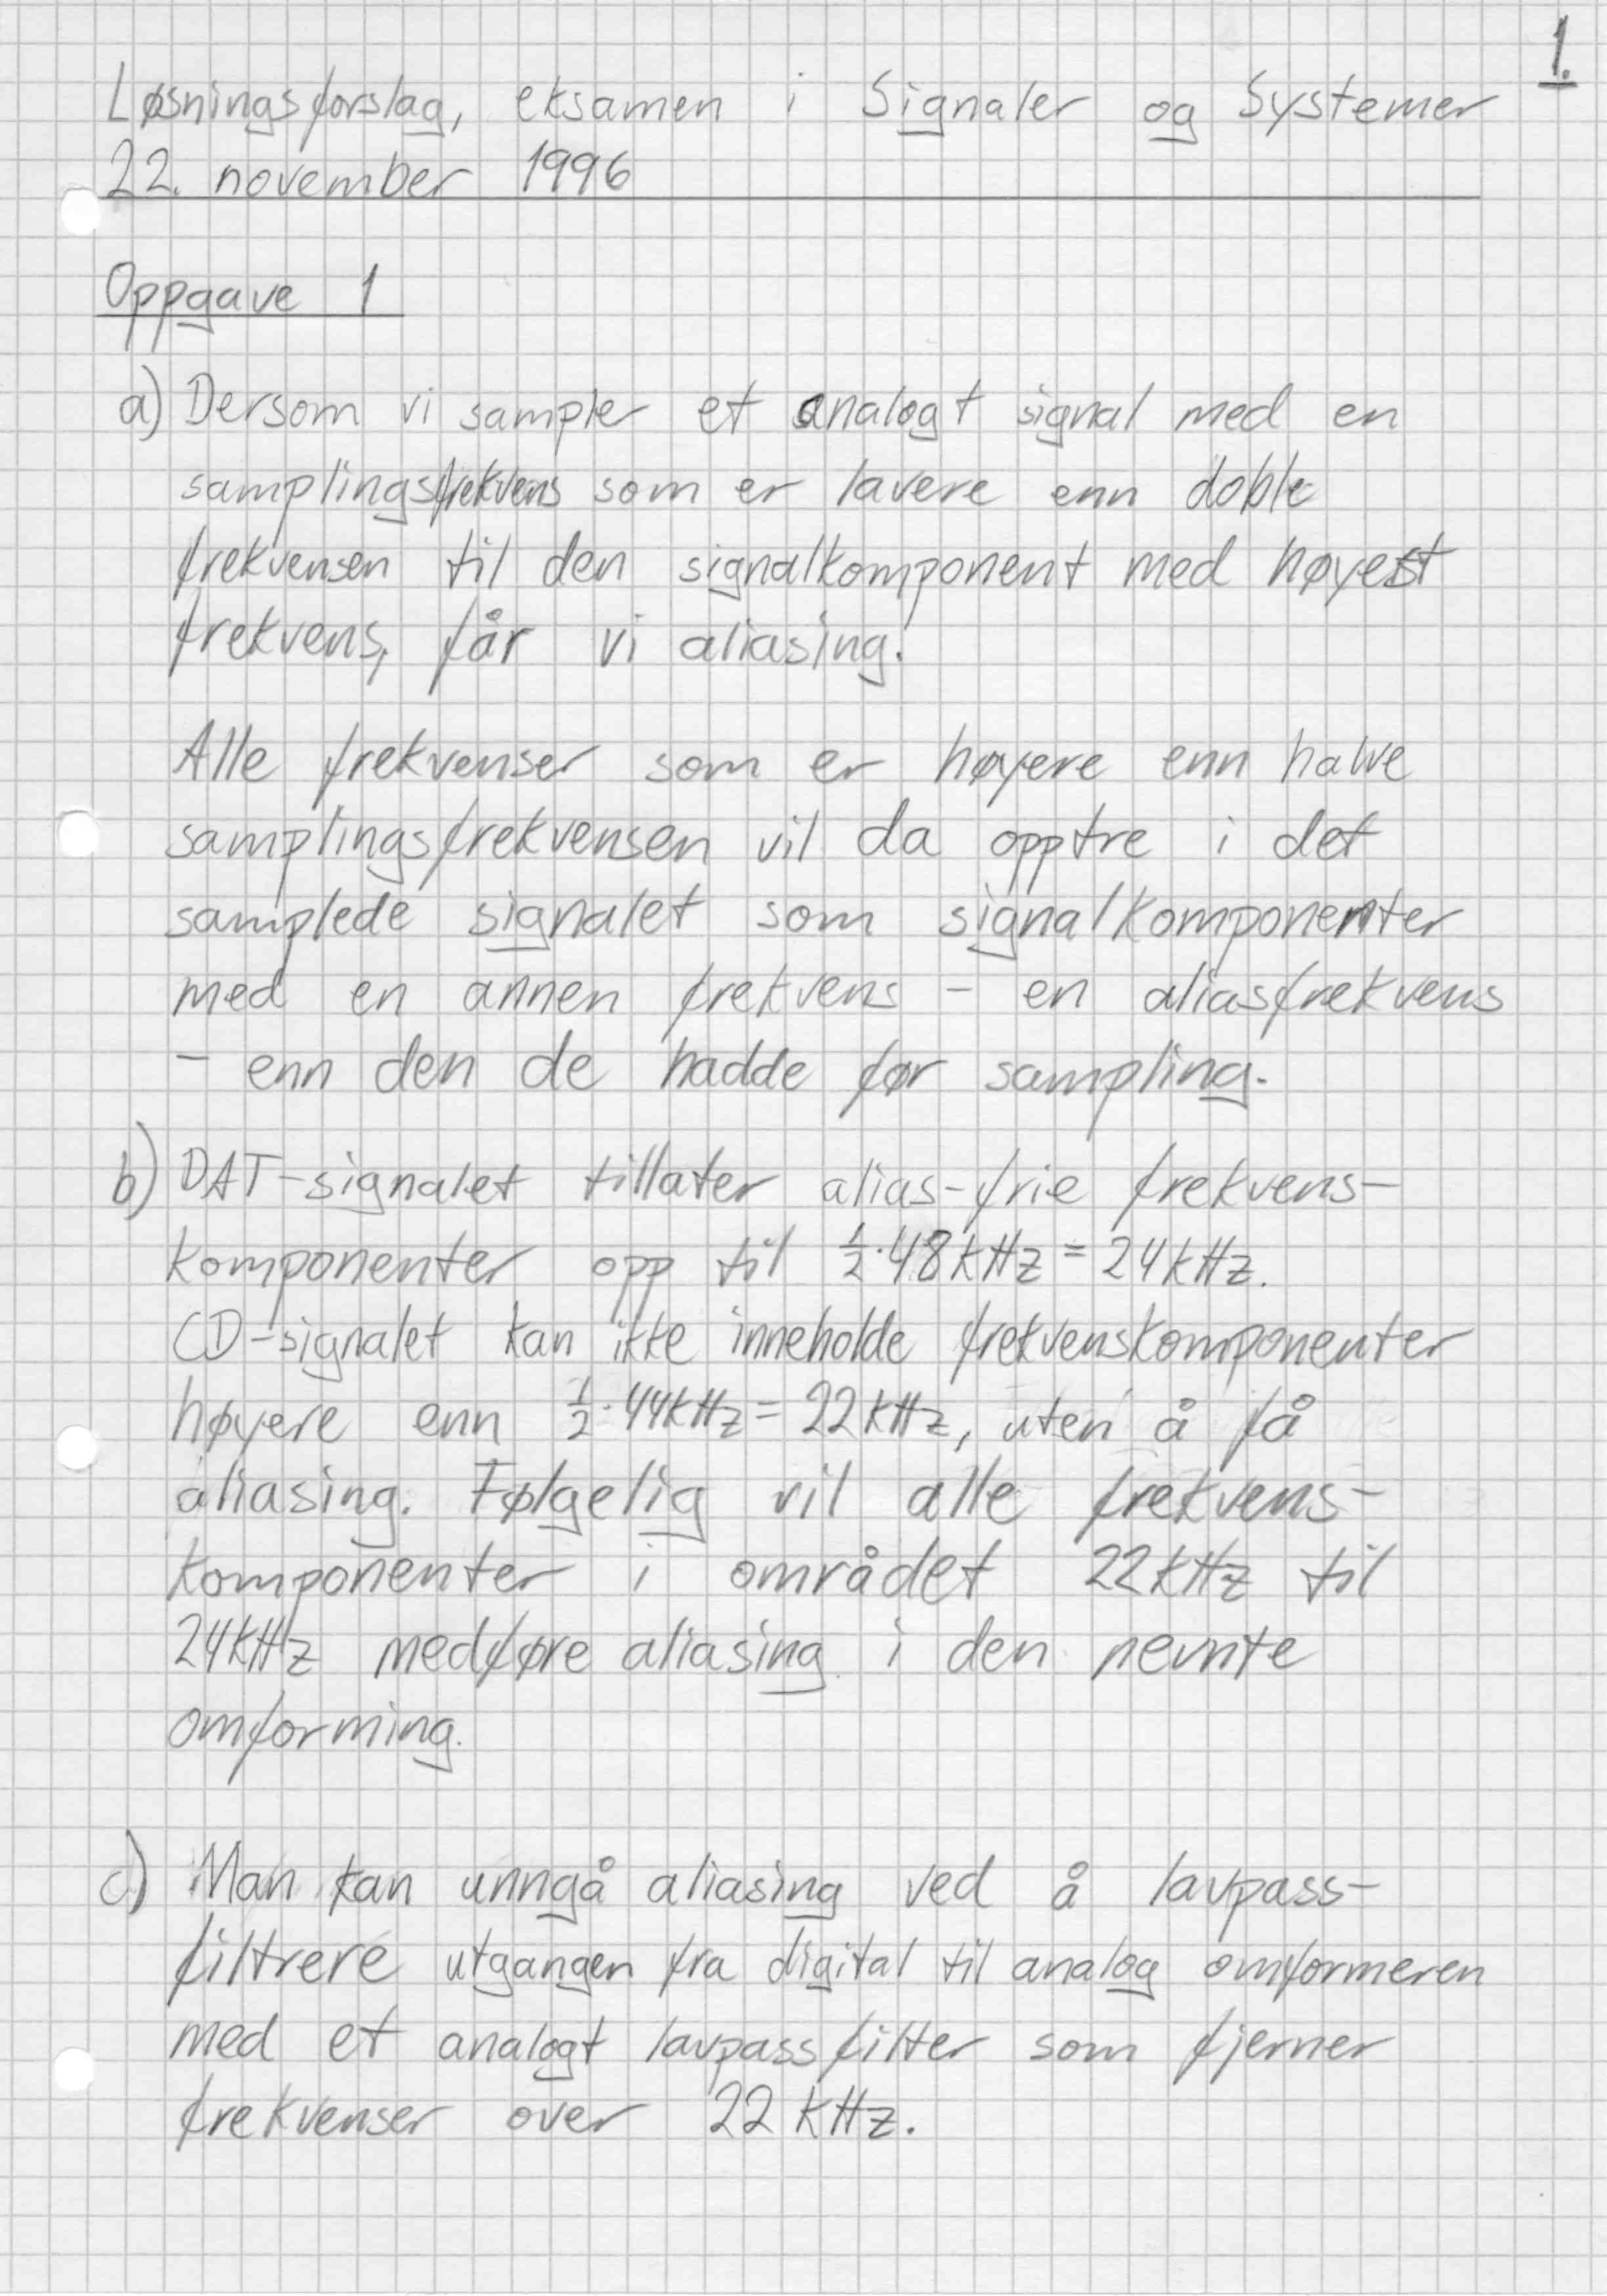 1.
Løsningsforslag, eksamen i Signaler og Systemer
22. november 1996
Oppgave 1
a) Dersom vi sampler et analogt signal med en
samplingsfrekvens som er lavere enn doble
frekvensen til den signalkomponent med høyest
frekvens, får vi aliasing.
Alle frekvenser som er høyere enn halve
samplingsfrekvensen vil da opptre i det
samplede signalet som signalkomponenter
med en annen frekvens - en aliasfrekvens
- enn den de hadde før sampling.
b) DAT-signalet tillater alias-frie frekvens-
komponenter opp til ½·48kHz = 24kHz.
CD-signalet kan ikke inneholde frekvenskomponenter
høyere enn ½·44kHz = 22kHz, uten å få
aliasing. Følgelig vil alle frekvens-
komponenter i området 22kHz til
24kHz medføre aliasing i den nevnte
omforming.
c) Man kan unngå aliasing ved å lavpass-
filtrere utgangen fra digital til analog omformeren
med et analogt lavpassfilter som fjerner
frekvenser over 22 kHz.